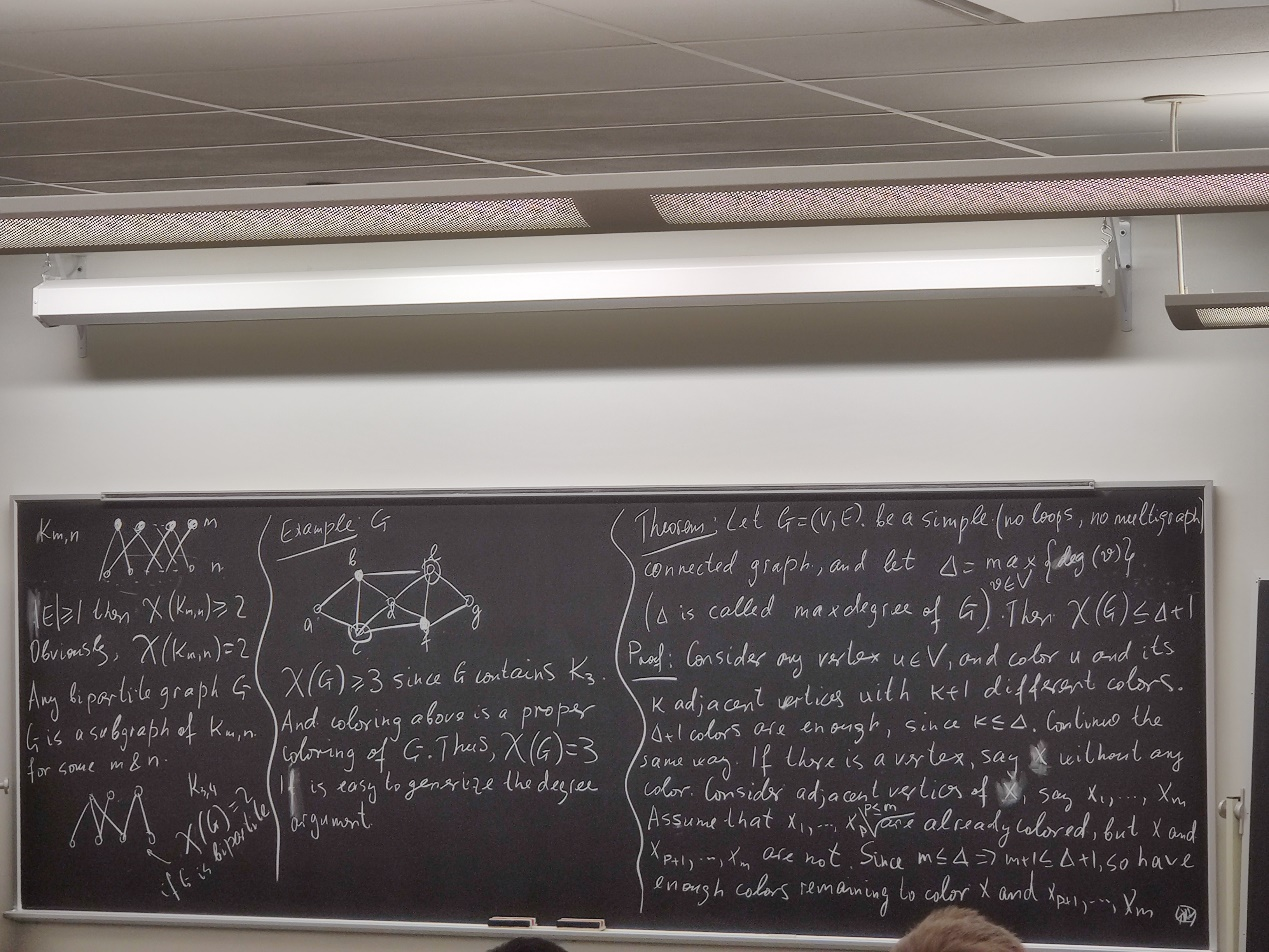 K_{m,n}
m
n
|E|≥1 then χ(K_{m,n})≥2
Obviously, χ(K_{m,n})=2
Any bipartite graph G
G is a subgraph of K_{m,n}
for some m & n.
K_{3,4}
χ(G)=2
if G is bipartite
Example: G
b
a
d
g
c
f
χ(G)≥3 since G contains K_3.
And coloring above is a proper
coloring of G. Thus, χ(G)=3
It is easy to generize the degree
argument
Theorem: Let G=(V,E). be a simple (no loops, no multigraph)
connected graph, and let Δ = max_{v∈V} {deg(v)}
(Δ is called maxdegree of G). Then χ(G)≤Δ+1
Proof: Consider any vertex u∈V, and color u and its
k adjacent vertices with k+1 different colors.
Δ+1 colors are enough, since k≤Δ. Continue the
same way. If there is a vertex, say X without any
color. Consider adjacent vertices of X, say x_1,…, x_m
Assume that x_1,…, x_p p≤m are already colored, but x and
x_{p+1},…, x_m are not. Since m≤Δ ⇒ m+1≤Δ+1, so have
enough colors remaining to color x and x_{p+1},…, x_m